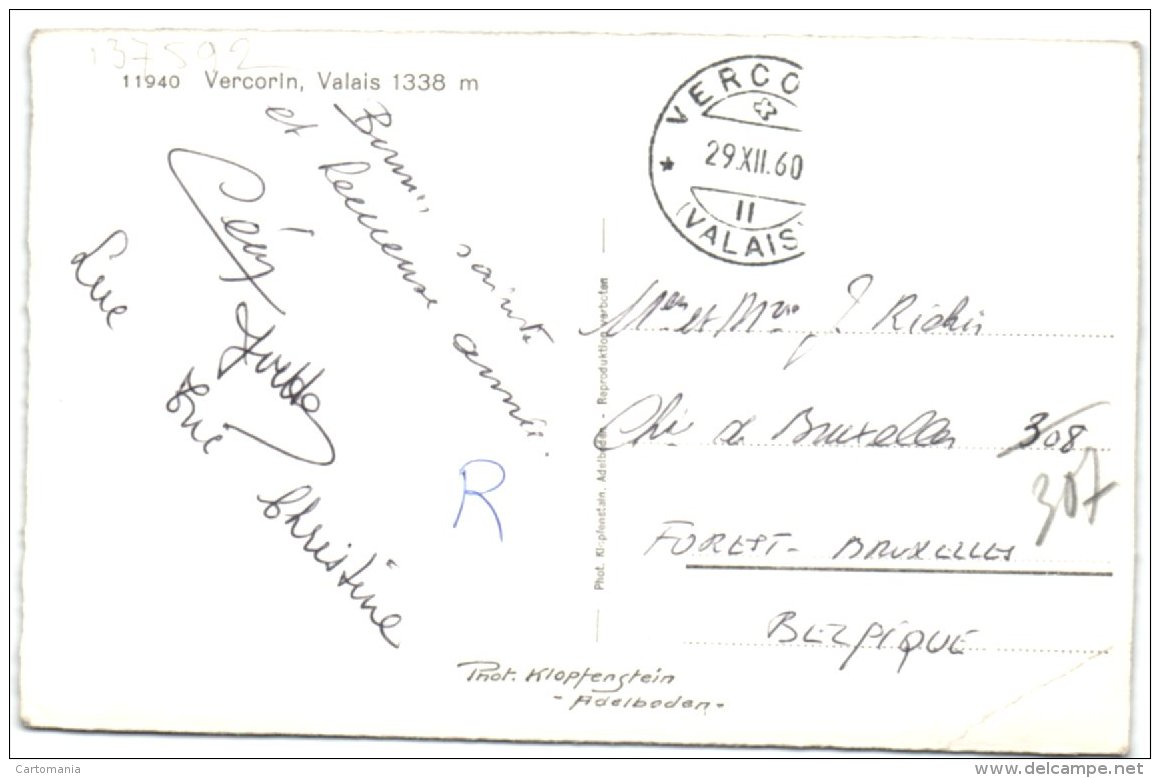 137592
11940 Vercorin, Valais 1338 m
Bonne, sainte
et heureuse année
Luc
Christine
R
VERCO
29.XII.60
II
(VALAIS
Phot. Klopfenstein. Adelboden - Reproduktion verboten
Mr et Mme J.
Chée de Bruxelles 308
307
FOREST - BRUXELLES
BELGIQUE
Phot. Klopfenstein
- Adelboden -
Cartomania
www.delcampe.net